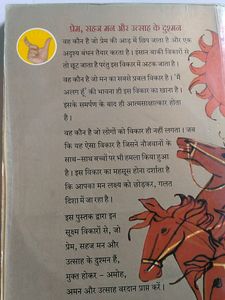 प्रेम, सहज मन और उत्साह के दुश्मन
वह कौन है जो प्रेम की आड़ में छिप जाता है और एक
अदृश्य बंधन तैयार करता है। इंसान बाकी विकारों से
तो छूट जाता है परंतु इस विकार में अटक जाता है।
वह कौन है जो मन का सबसे प्रबल विकार है। 'मैं
अलग हूँ' की भावना ही इस विकार का खाना है।
इसके समर्पण के बाद ही आत्मसाक्षात्कार होता
है।
वह कौन है जो लोगों को विकार ही नहीं लगता। जब
कि यह ऐसा विकार है जिसने नौजवानों के
साथ-साथ बच्चों पर भी हमला किया हुआ
है। इस विकार का महसूस होना दर्शाता है
कि आपका मन लक्ष्य को छोड़कर, गलत
दिशा में जा रहा है।
इस पुस्तक द्वारा इन
सूक्ष्म विकारों से, जो
प्रेम, सहज मन और
उत्साह के दुश्मन हैं,
मुक्त होकर - अमोह,
अमन और उत्साह वरदान प्राप्त करें।